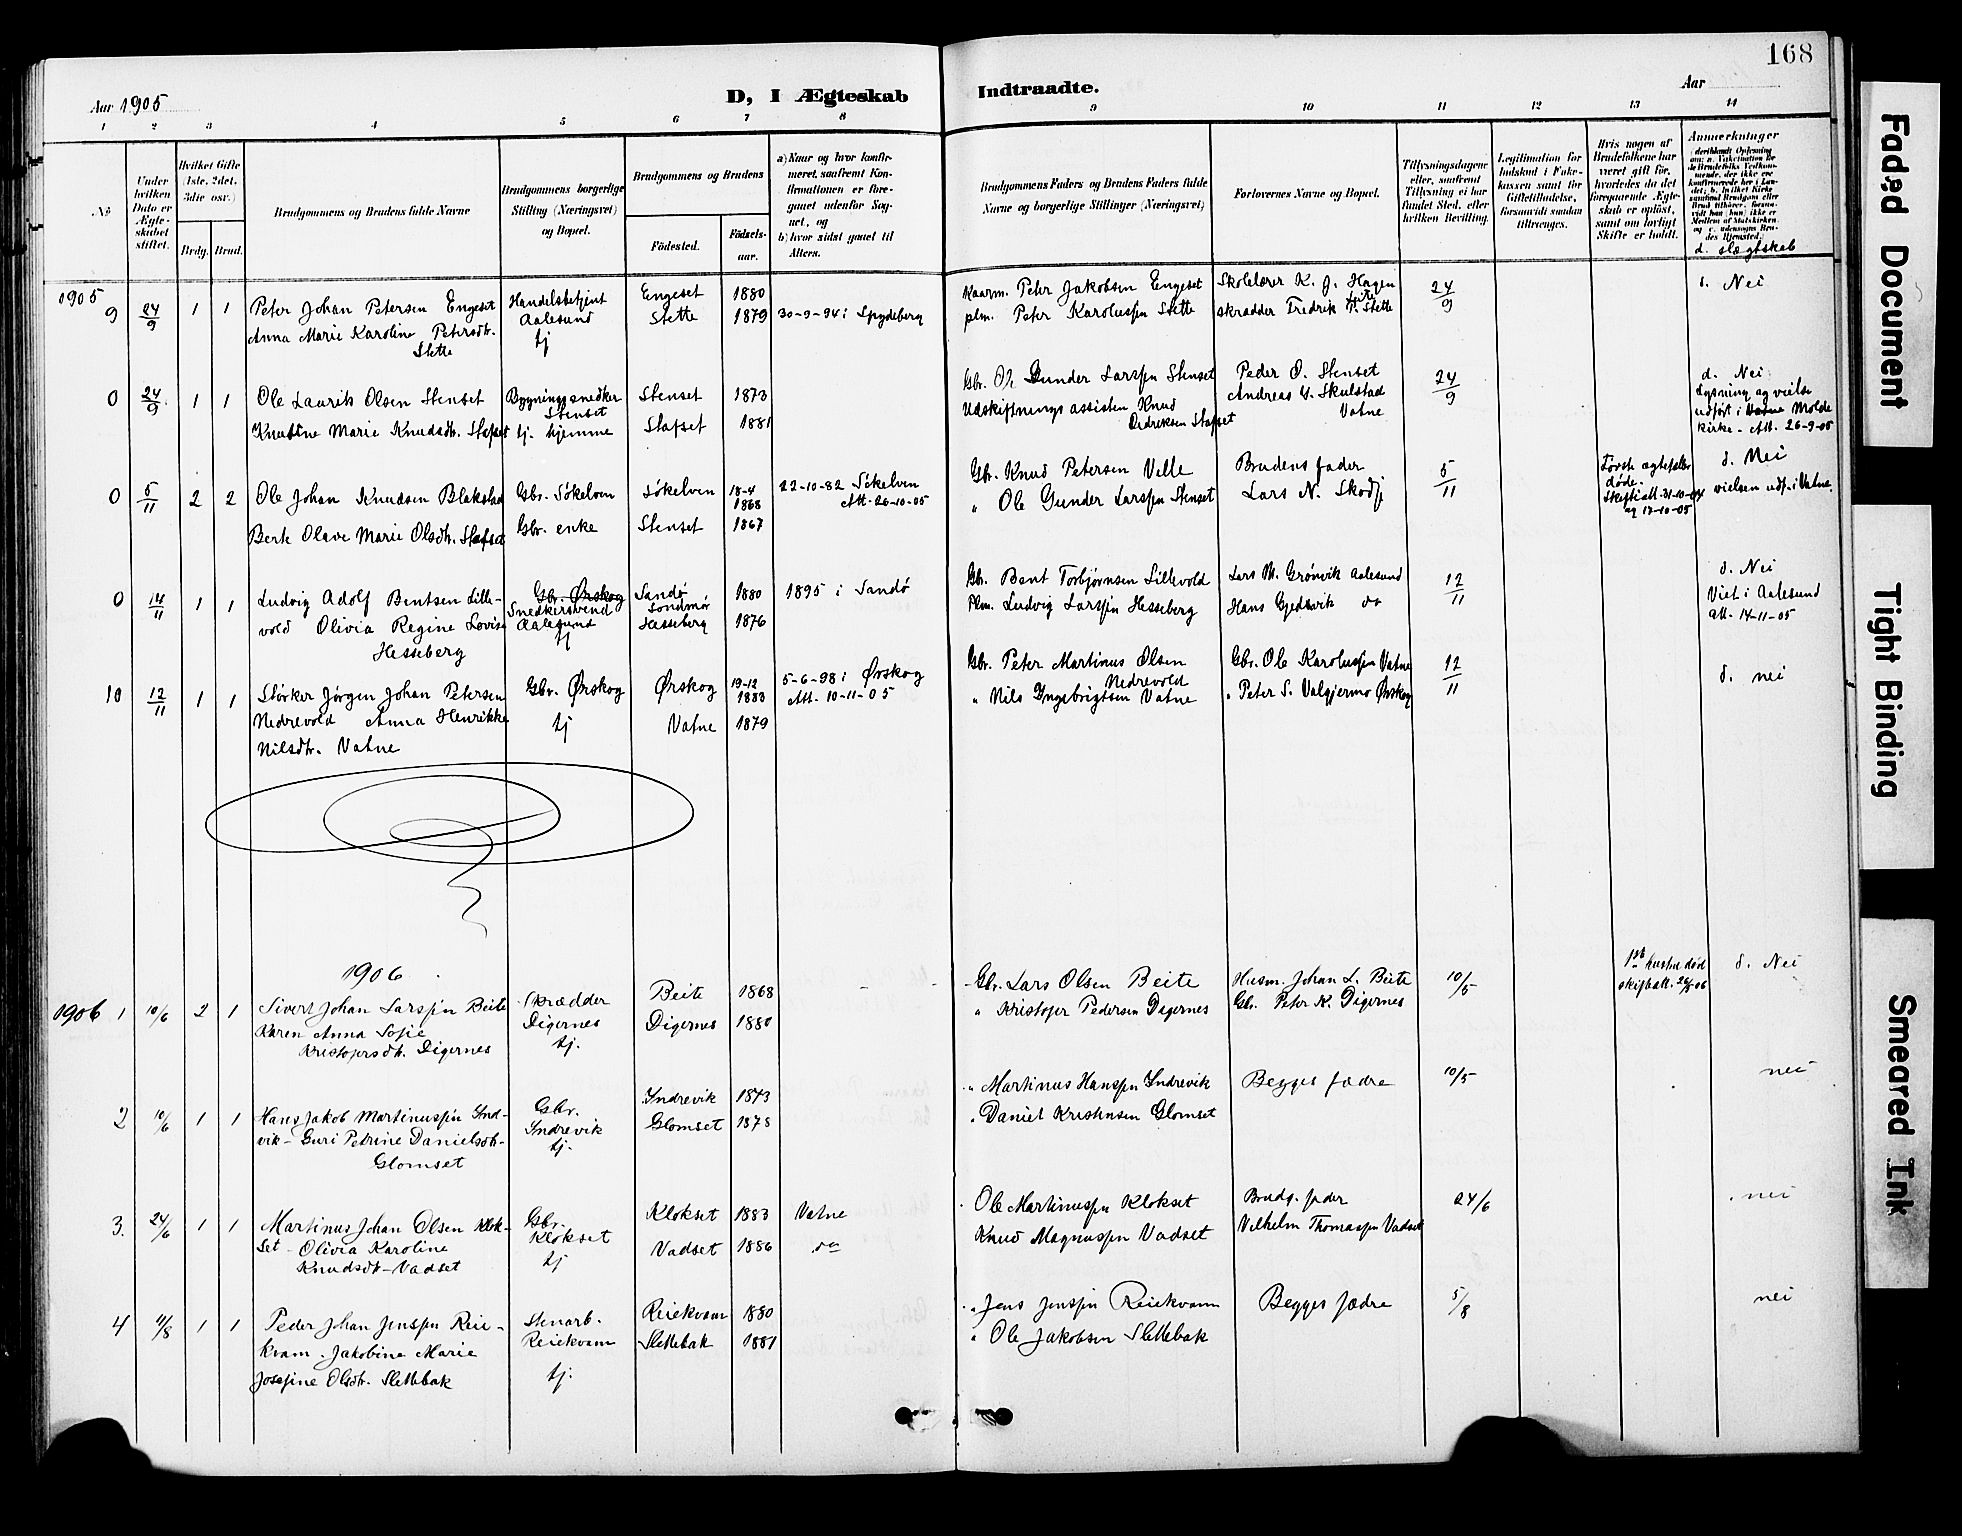 168
Aar 1905
D, I Ægteskab
Indtraadte.
Aar
1 2 3 4 5 6 7 8 9 10 11 12 13 14
No
Under hvilken Dato er Ægteskabet stiftet.
Hvilket Gifte (1ste, 2det, 3die osv.)
Brdg. Brud.
Brudgommens og Brudens fulde Navne
Brudgommens borgerlige Stilling (Næringsvei) og Bopæl.
Brudgommens og Brudens
Födested.
Födsels-aar.
a) Naar og hvor konfirmeret, saafremt Konfirmationen er foregaaet udenfor Sognet, og
b) hvor sidst gaaet til Alters.
Brudgommens Faders og Brudens Faders fulde Navne og borgerlige Stillinger (Næringsvei)
Forlovernes Navne og Bopæl.
Tillysningsdagene eller, saafremt Tillysning ei har fundet Sted, efter hvilken Bevilling.
Legitimation for Indskud i Enkekassen samt for Giftetilladelse, forsaavidt saadan tiltrænges.
Hvis nogen af Brudefolkene har været gift för, hvorledes da det foregaaende Ægteskab er oplöst, samt om lovligt Skifte er holdt.
Anmerkninger
d. slægtskab
1905
9 24/9 1 1
Peter Johan Petersen Engeset
Anna Marie Karoline Petersdtr.
Slette
Handelsbetjent
Aalesund
tj
Engeset 1880
Slette 1879
30-9-94 i Spydeberg
Kaarm. Peter Jakobsen Engeset
plm. Peter Karolussen Slette
Skolelærer K. J. Hagen
skrædder Fredrik P. Slette
24/9
d. Nei
0 24/9 1 1
Ole Laurits Olsen Stenset
Knutine Marie Knudsdtr. Slafset
Bygningssnedker
Stenset
tj. hjemme
Stenset 1873
Slafset 1881
Gbr. Ole Gunder Larssen Stenset
Udskiftningsassistent Knud
Didriksen Slafset
Peder O. Stenset
Andreas G. Skulstad
Vatne
24/9
d. Nei
Lysning og vielse
udført i Vatne Molde
kirke - Att. 26-9-05
0 5/11 2 2
Ole Johan Knudsen Blakstad
Berte Olave Marie Olsdtr. Slafset
Gbr. Søkelven
Gbr. enke
Søkelven 18-4 1868
Stenset 1867
22-10-82 Søkelven
Att. 26-10-05
Gbr. Knud Petersen Velle
" Ole Gunder Larssen Stenset
Brudens fader
Lars N. Skodj
5/11
Første ægtefæller
døde.
Skifteatt. 31-10-04
og 17-10-05
d. Nei
vielsen udf. i Vatne.
0 14/11 1 1
Ludvig Adolf Bentsen Lille-
vold Olivia Regine Lovise
Hesseberg
Gbr. Ørskog
Snedkersvend
Aalesund
tj
Sandø
Søndmør
1880
Hesseberg 1876
1895 i Sandø
Gbr. Bent Torbjørnsen Lillevold
Plm. Ludvig Larssen Hesseberg
Lars M. Grønvik Aalesund
Hans Gjedsvik do
12/11
d. Nei
Viet i Aalesund
att. 14-11-05
10 12/11 1 1
Størker Jørgen Johan Petersen
Nedrevold Anna Henrikke
Nilsdtr. Vatne
Gbr. Ørskog
tj
Ørskog 19-12 1883
Vatne 1879
5-6-98 i Ørskog
Att. 10-11-05
Gbr. Peter Martinus Olsen
Nedrevold
" Nils Ingebrigtsen Vatne
Gbr. Ole Karolussen Vatne
" Peter S. Valgjermo Ørskog
12/11
d. nei
1906
1906 1 10/6 2 1
Sivert Johan Larssen Beite
Karen Anna Sofie
Kristofersdtr. Digernes
Skrædder
Digernes
tj.
Beite 1868
Digernes 1880
Gbr. Lars Olsen Beite
" Kristofer Pedersen Digernes
Husm. Johan L. Beite
Gbr. Peter K. Digernes
10/5
1ste hustru død
d. Nei
2 10/6 1 1
Hans Jakob Martinussen Ind-
vik - Guri Petrine Danielsdtr.
Glomset
Gbr.
Indrevik
tj.
Indrevik 1873
Glomset 1878
" Martinus Hanssen Indrevik
" Daniel Kristensen Glomset
Begges fædre
10/5
nei
3. 24/6 1 1
Martinus Johan Olsen Klok-
set - Olivia Karoline
Knudsdtr - Vadset
Gbr.
Klokset
tj
Klokset 1883
Vadset 1886
Vatne
do
Ole Martinussen Klokset
Knud Magnussen Vadset
Brudg. fader
Vilhelm Thomassen Vadset
24/6
nei
4 11/8 1 1
Peder Johan Jenssen Reie-
kvam - Jakobine Marie
Josefine Olsdtr. Slettebak
Stenarb.
Reiekvam
tj.
Reiekvam 1880
Slettebak 1881
" Jens Jenssen Reiekvam
" Ole Jakobsen Slettebak
Begges fædre
5/8
nei
Faded Document
Tight Binding
Smeared Ink